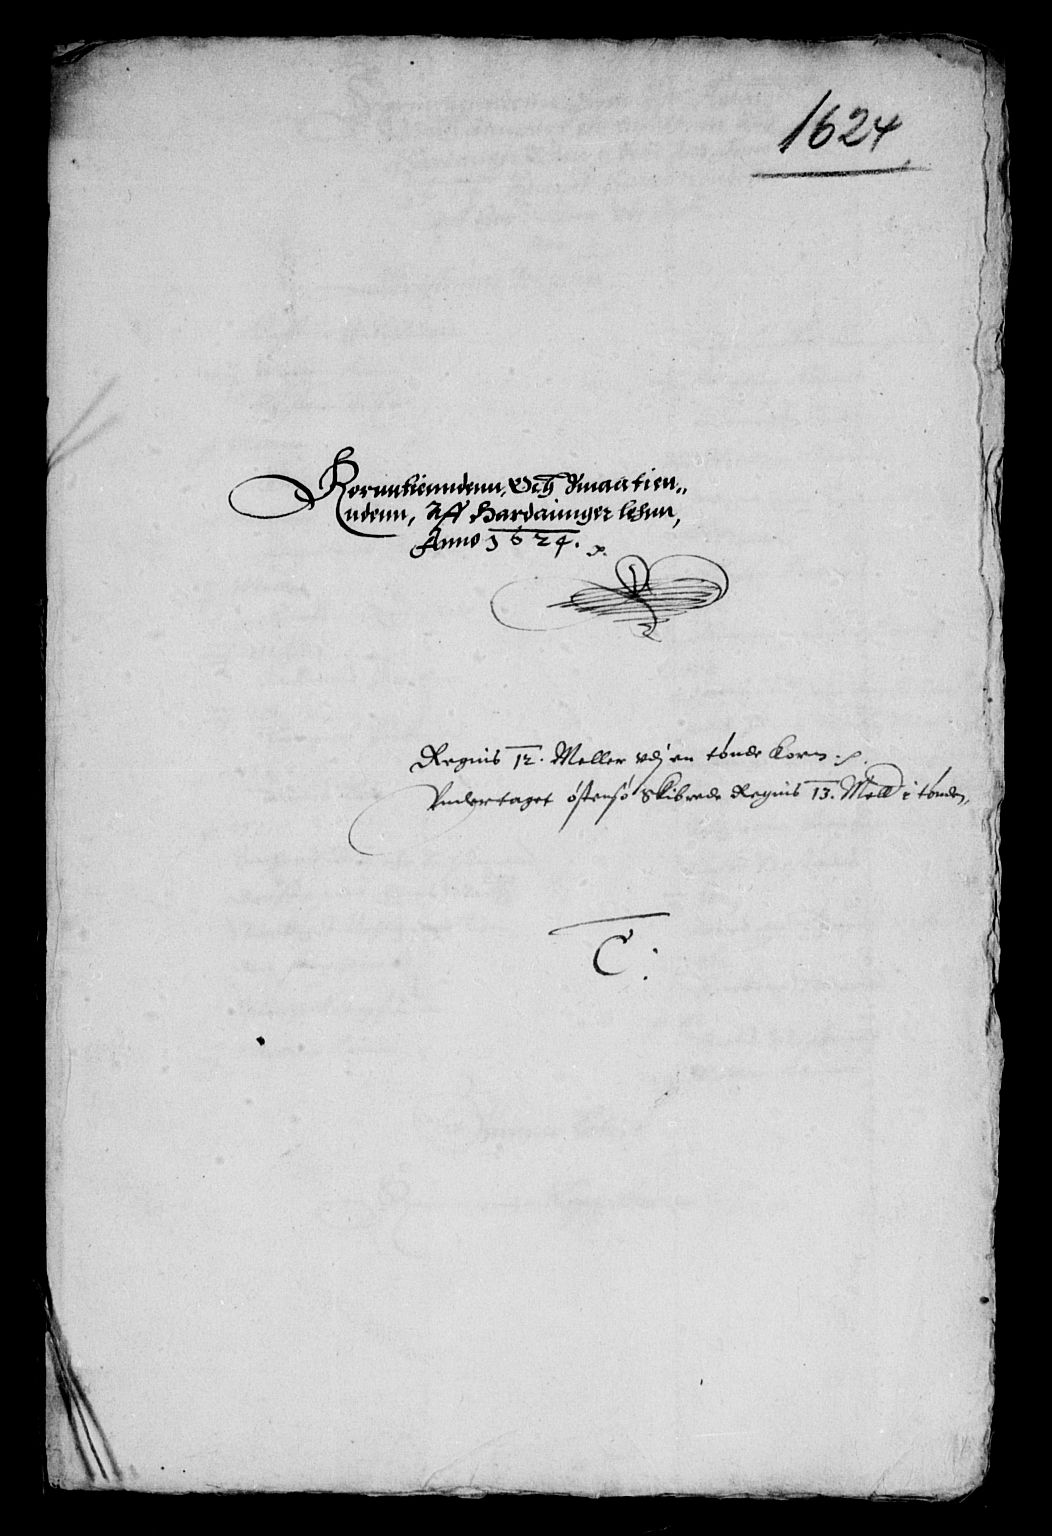 1624
Kornntienndenn, Och Smaatien„
ndenn, Aff Hardannger lehnn,
Anno 1624.
Regnis 12. Meller vdj en tønde korn
Vndertaget østensø Skibrede Regnis 13. Mell i tønden,
C: